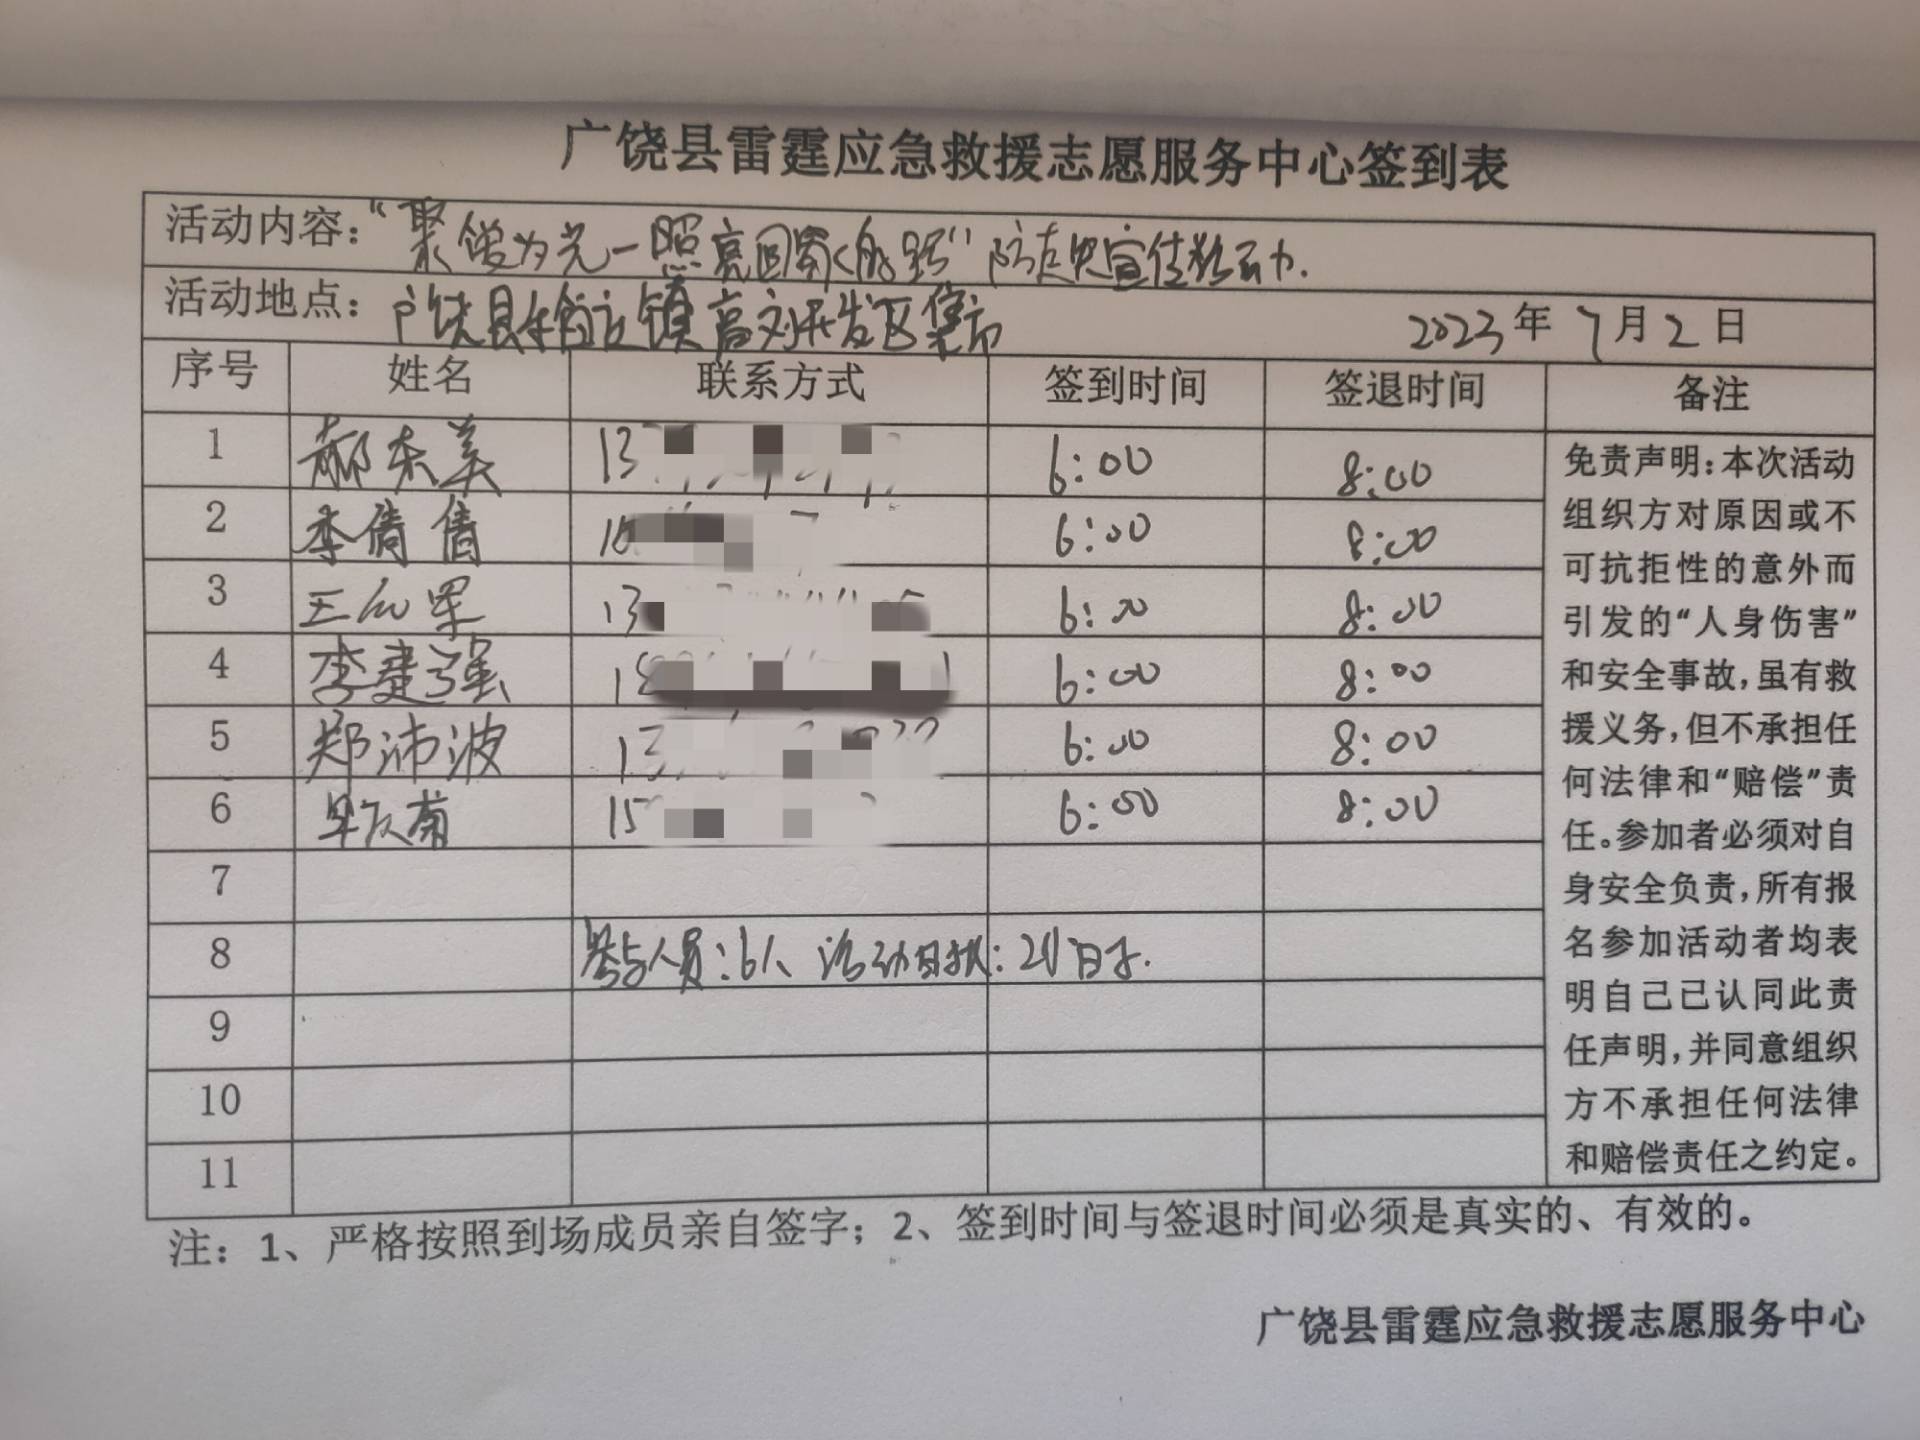 广饶县雷霆应急救援志愿服务中心签到表
活动内容：“聚 为光一照亮回家的路”防走失宣传活动.
活动地点：广饶县 镇高刘开发区集市 2023年7月2日
序号 姓名 联系方式 签到时间 签退时间 备注
1 郝东美 13 6:00 8:00
2 李倩倩 6:00 8:00
3 王 军 13 6:00 8:00
4 李建强 18 6:00 8:00
5 郑沛波 13 6:00 8:00
6 菊 15 6:00 8:00
7
8 参与人员:6人 活动时长: 
9
10
11
免责声明：本次活动
组织方对原因或不
可抗拒性的意外而
引发的“人身伤害”
和安全事故，虽有救
援义务，但不承担任
何法律和“赔偿”责
任。参加者必须对自
身安全负责，所有报
名参加活动者均表
明自己已认同此责
任声明，并同意组织
方不承担任何法律
和赔偿责任之约定。
注：1、严格按照到场成员亲自签字；2、签到时间与签退时间必须是真实的、有效的。
广饶县雷霆应急救援志愿服务中心